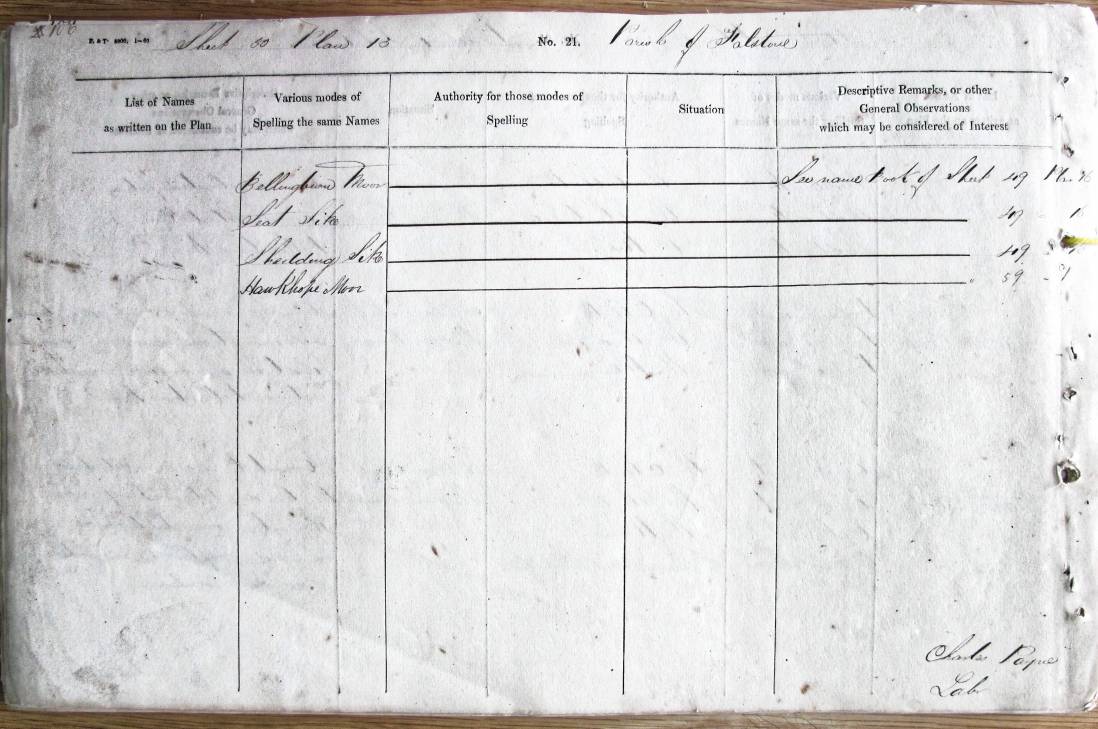 Sheet 50 Plan 13 No. 21. Parish of Falstone
List of Names
as written on the Plan
Various modes of
Spelling the same Names
Authority for those modes of
Spelling
Situation
Descriptive Remarks, or other
General Observations
which may be considered of Interest
Bellingham Moor See name Book of Sheet 49
Seat Sike 49
Shedding Sike 49
Hawkhope Moor " 59
Charles Payne
Labr